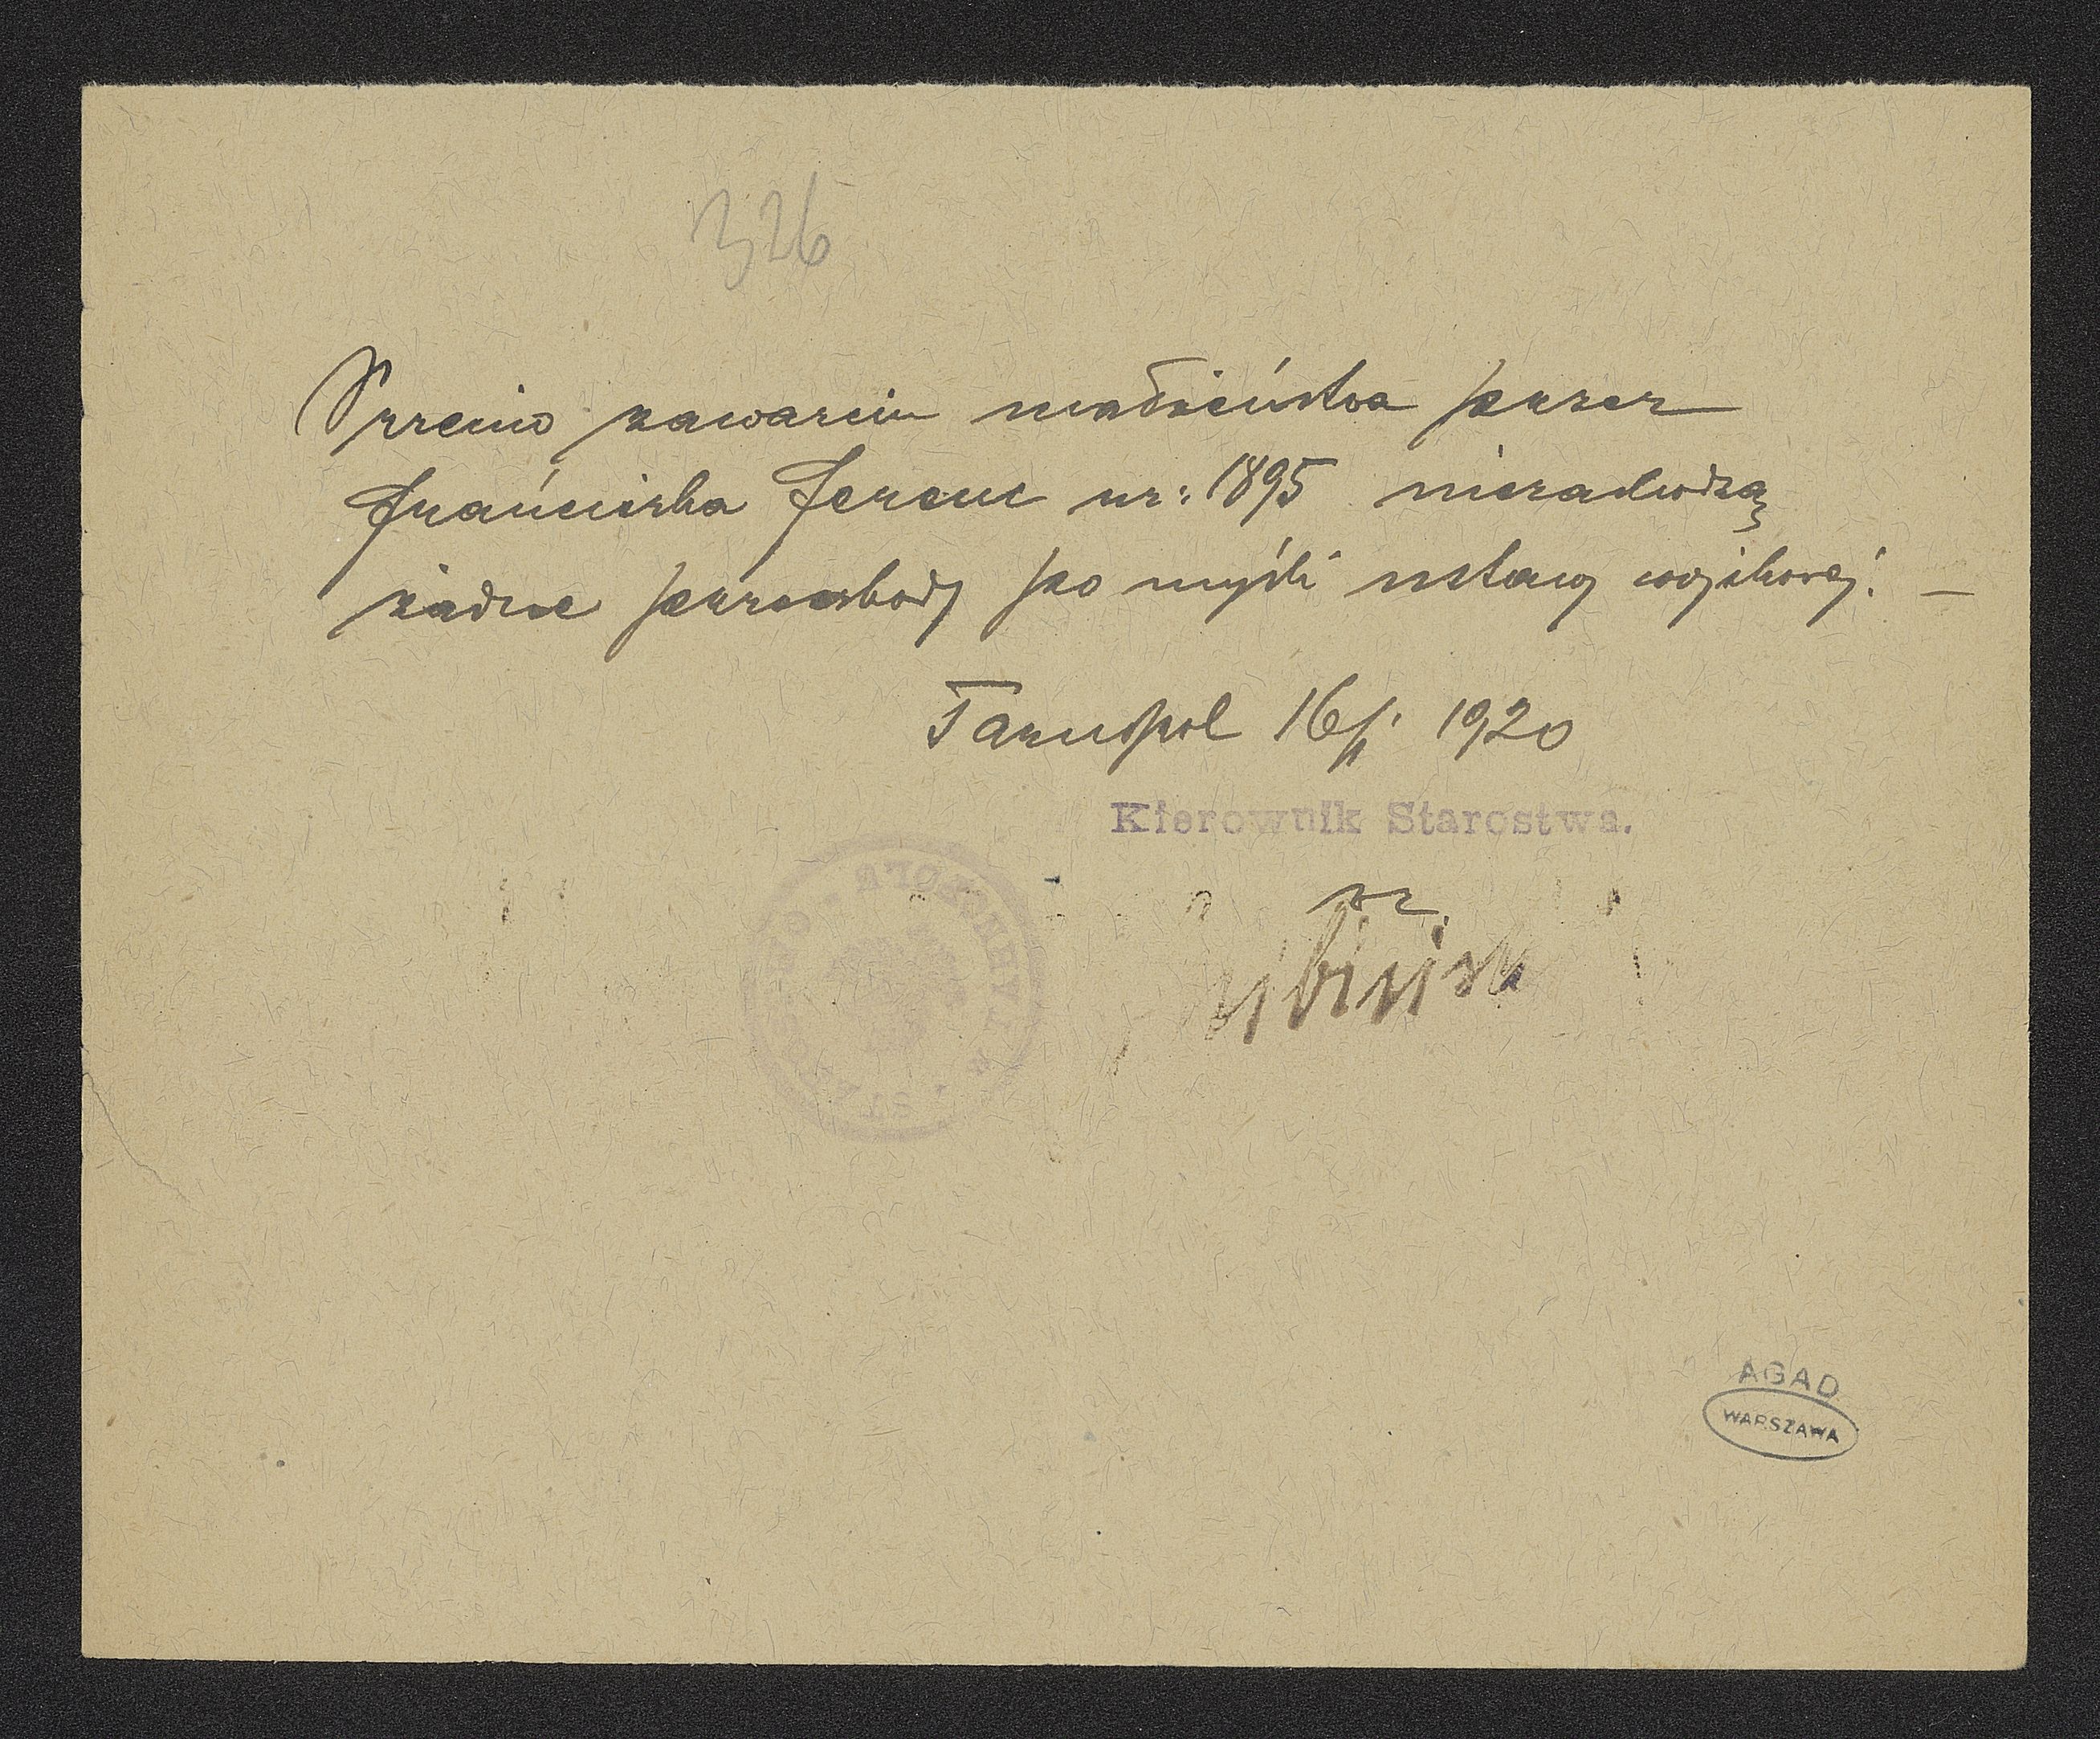 326
Przeciw zawarciu małżeństwa przez
Franciszka Ferenc ur: 1895 niezachodzą
żadne przeszkody po myśli ustawy wojskowej. —
Tarnopol 16/II 1920
Kierownik Starostwa.
wz.
AGAD
WARSZAWA